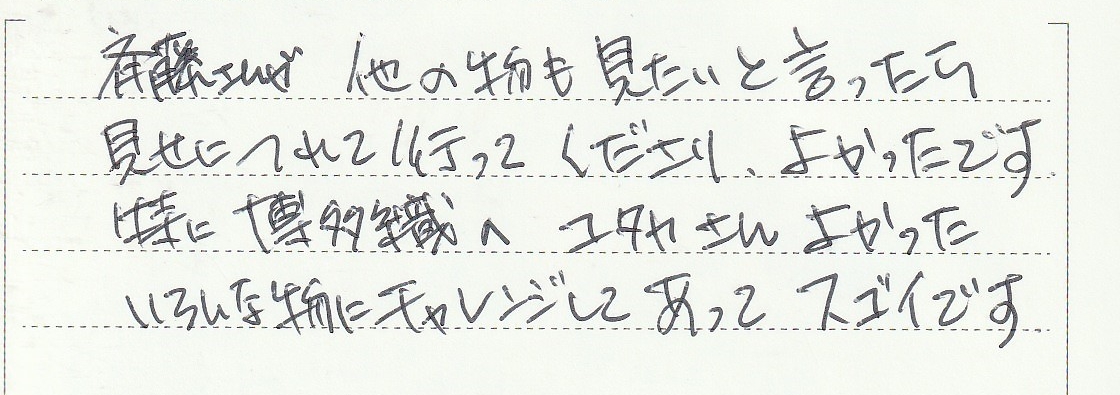 斉藤さんが 他の物も見たいと言ったら
見せにつれて行って くださり、よかったです
特に 博多織の ユタカさん よかった
いろんな物にチャレンジして あって スゴイです